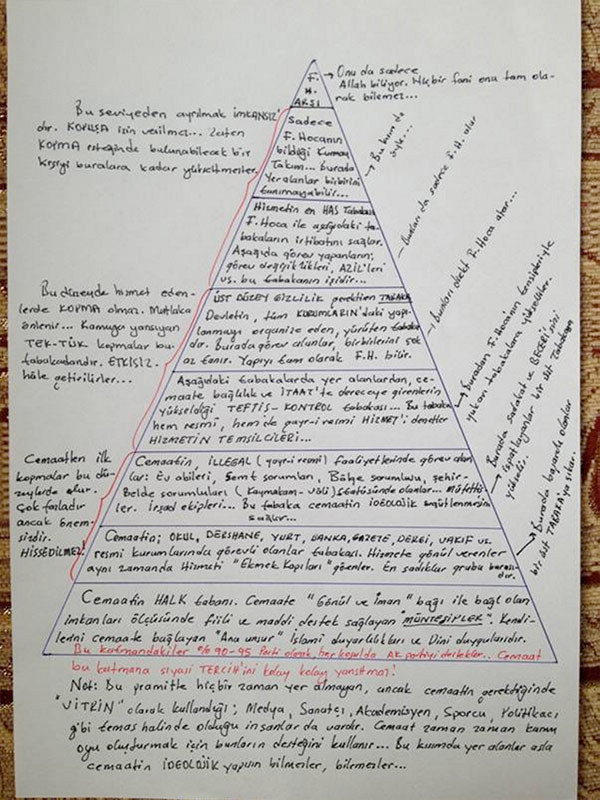 F.
H.
ARŞI
→ Onu da sadece
Allah biliyor. Hiçbir fani onu tam ola-
rak bilemez...
Bu seviyeden ayrılmak imkansız'
dır. KOPUŞA izin verilmez... Zaten
KOPMA isteğinde bulunabilecek bir
kişiyi buralara kadar yükseltmezler.
Sadece
F. Hocanın
bildiği Kurmay
Takım... burada
Yer alanlar birbirini
tanımayabilir...
→ Bu kısım da
öyle...
Hizmetin en HAS Tabakası
F. Hoca ile aşağıdaki ta-
bakaların irtibatını sağlar.
Aşağıda görev yapanların;
görev değişiklikleri, AZİL'leri
vs. bu tabakanın işidir...
– Bunları da sadece F. H. atar
Bu düzeyde hizmet eden-
lerde KOPMA olmaz. Mutlaka
önlenir... Kamuoya yansıyan
TEK-TÜK kopmalar bu
tabakadandır. ETKİSİZ-
hâle getirilirler...
ÜST DÜZEY GİZLİLİK gerektiren TABAKA
Devletin, tüm KURUMLARIN'daki yapı-
lanmayı organize eden, yürüten tabaka
dır. Burada görev alanlar, birbirlerini çok
az tanır. Yapıyı tam olarak F.H. bilir.
– Bunları direkt F. Hoca atar...
Aşağıdaki tabakalarda yer alanlardan, ce-
maate bağlılık ve İTAAT'te dereceye girenlerin
yükseldiği TEFTİŞ-KONTROL tabakası... Bu tabaka
hem resmi, hem de gayr-i resmi HİZMET'i denetler
HİZMETİN TEMSİLCİLERİ...
→ Buradan F. Hoca'nın tensipleriyle
yukarı tabakalara yükselirler.
Cemaatten ilk
kopmalar bu dü-
zeylerde olur.
Çok fazladır
ancak önem-
sizdir.
HİSSEDİLMEZ!
Cemaatin, İLLEGAL (gayr-i resmi) faaliyetlerinde görev alan
lar: Ev abileri, Semt sorumluları, Bölge sorumlusu, şehir-
Belde sorumluları (Kaymakam-vâli) statüsünde olanlar...
ler. İrşad ekipleri... Bu tabaka cemaatin İDEOLOJİK
sağlar...
→ Burada sadakat ve BECERİ'sini
ispatlayanlar bir üst Tabakaya
yükselir.
Cemaatin; OKUL, DERSHANE, YURT, BANKA, GAZETE, DERGİ, VAKIF vs.
resmi kurumlarında görevli olanlar tabakası. Hizmete gönül verenler
aynı zamanda Hizmeti "Ekmek Kapıları" görenler. En sadıklar grubu burası-
dır.
→ Burada başarılı olanlar
bir üst TABAKA'ya çıkar.
Cemaatin HALK tabanı. Cemaate "Gönül ve İman" bağı ile bağlı olan
imkanları ölçüsünde fiili ve maddi destek sağlayan "MÜNTESİPLER". Kendi-
lerini cemaate bağlayan "Ana unsur" İslami duyarlılıkları ve Dini duygularıdır.
Bu katmandakiler %90-95 Parti olarak, her koşulda AK partiyi destekler.. Cemaat
bu katmana siyasi TERCİH'ini kolay kolay yansıtmaz!
Not: Bu pramitte hiçbir zaman yer almayan, ancak cemaatin gerektiğinde
"VİTRİN" olarak kullandığı; Medya, Sanatçı, Akademisyen, Sporcu, Politikacı
gibi temas halinde olduğu insanlar da vardır. Cemaat zaman zaman kamu
oyu oluşturmak için bunların desteğini kullanır... Bu kısımda yer alanlar asla
cemaatin İDEOLOJİK yapısın bilmezler, bilemezler...